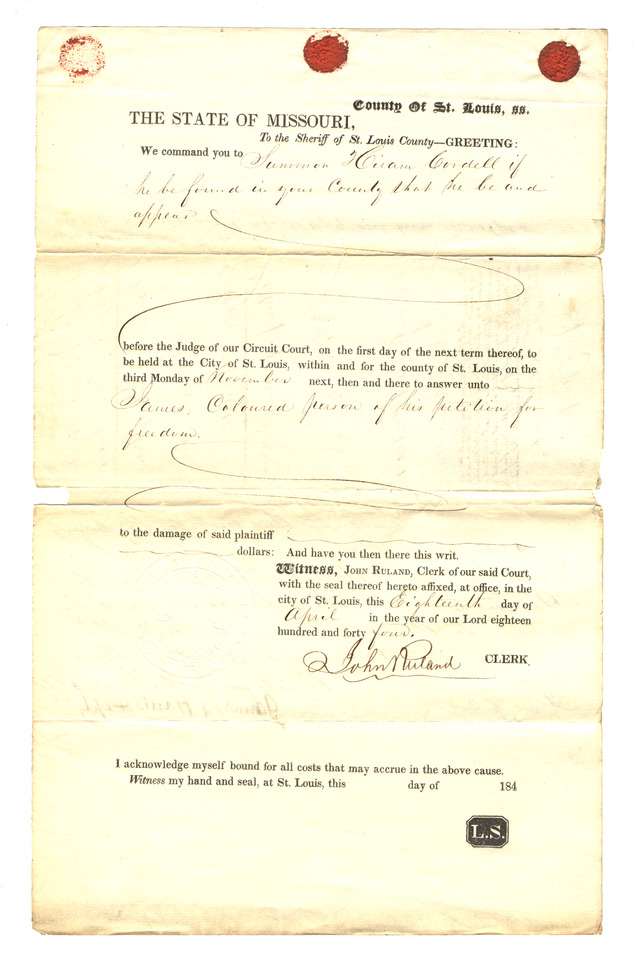 County Of St. Louis, ss.
THE STATE OF MISSOURI,
To the Sheriff of St. Louis County—GREETING:
We command you to Summon Hiram Cordell if
he be found in your County that he be and
appear
before the Judge of our Circuit Court, on the first day of the next term thereof, to
be held at the City of St. Louis, within and for the county of St. Louis, on the
third Monday of November next, then and there to answer unto
James, Coloured person of his petition for
freedom.
to the damage of said plaintiff
dollars: And have you then there this writ.
Witness, JOHN RULAND, Clerk of our said Court,
with the seal thereof hereto affixed, at office, in the
city of St. Louis, this Eighteenth day of
April in the year of our Lord eighteen
hundred and forty four.
John Ruland CLERK.
I acknowledge myself bound for all costs that may accrue in the above cause.
Witness my hand and seal, at St. Louis, this day of 184
L.S.